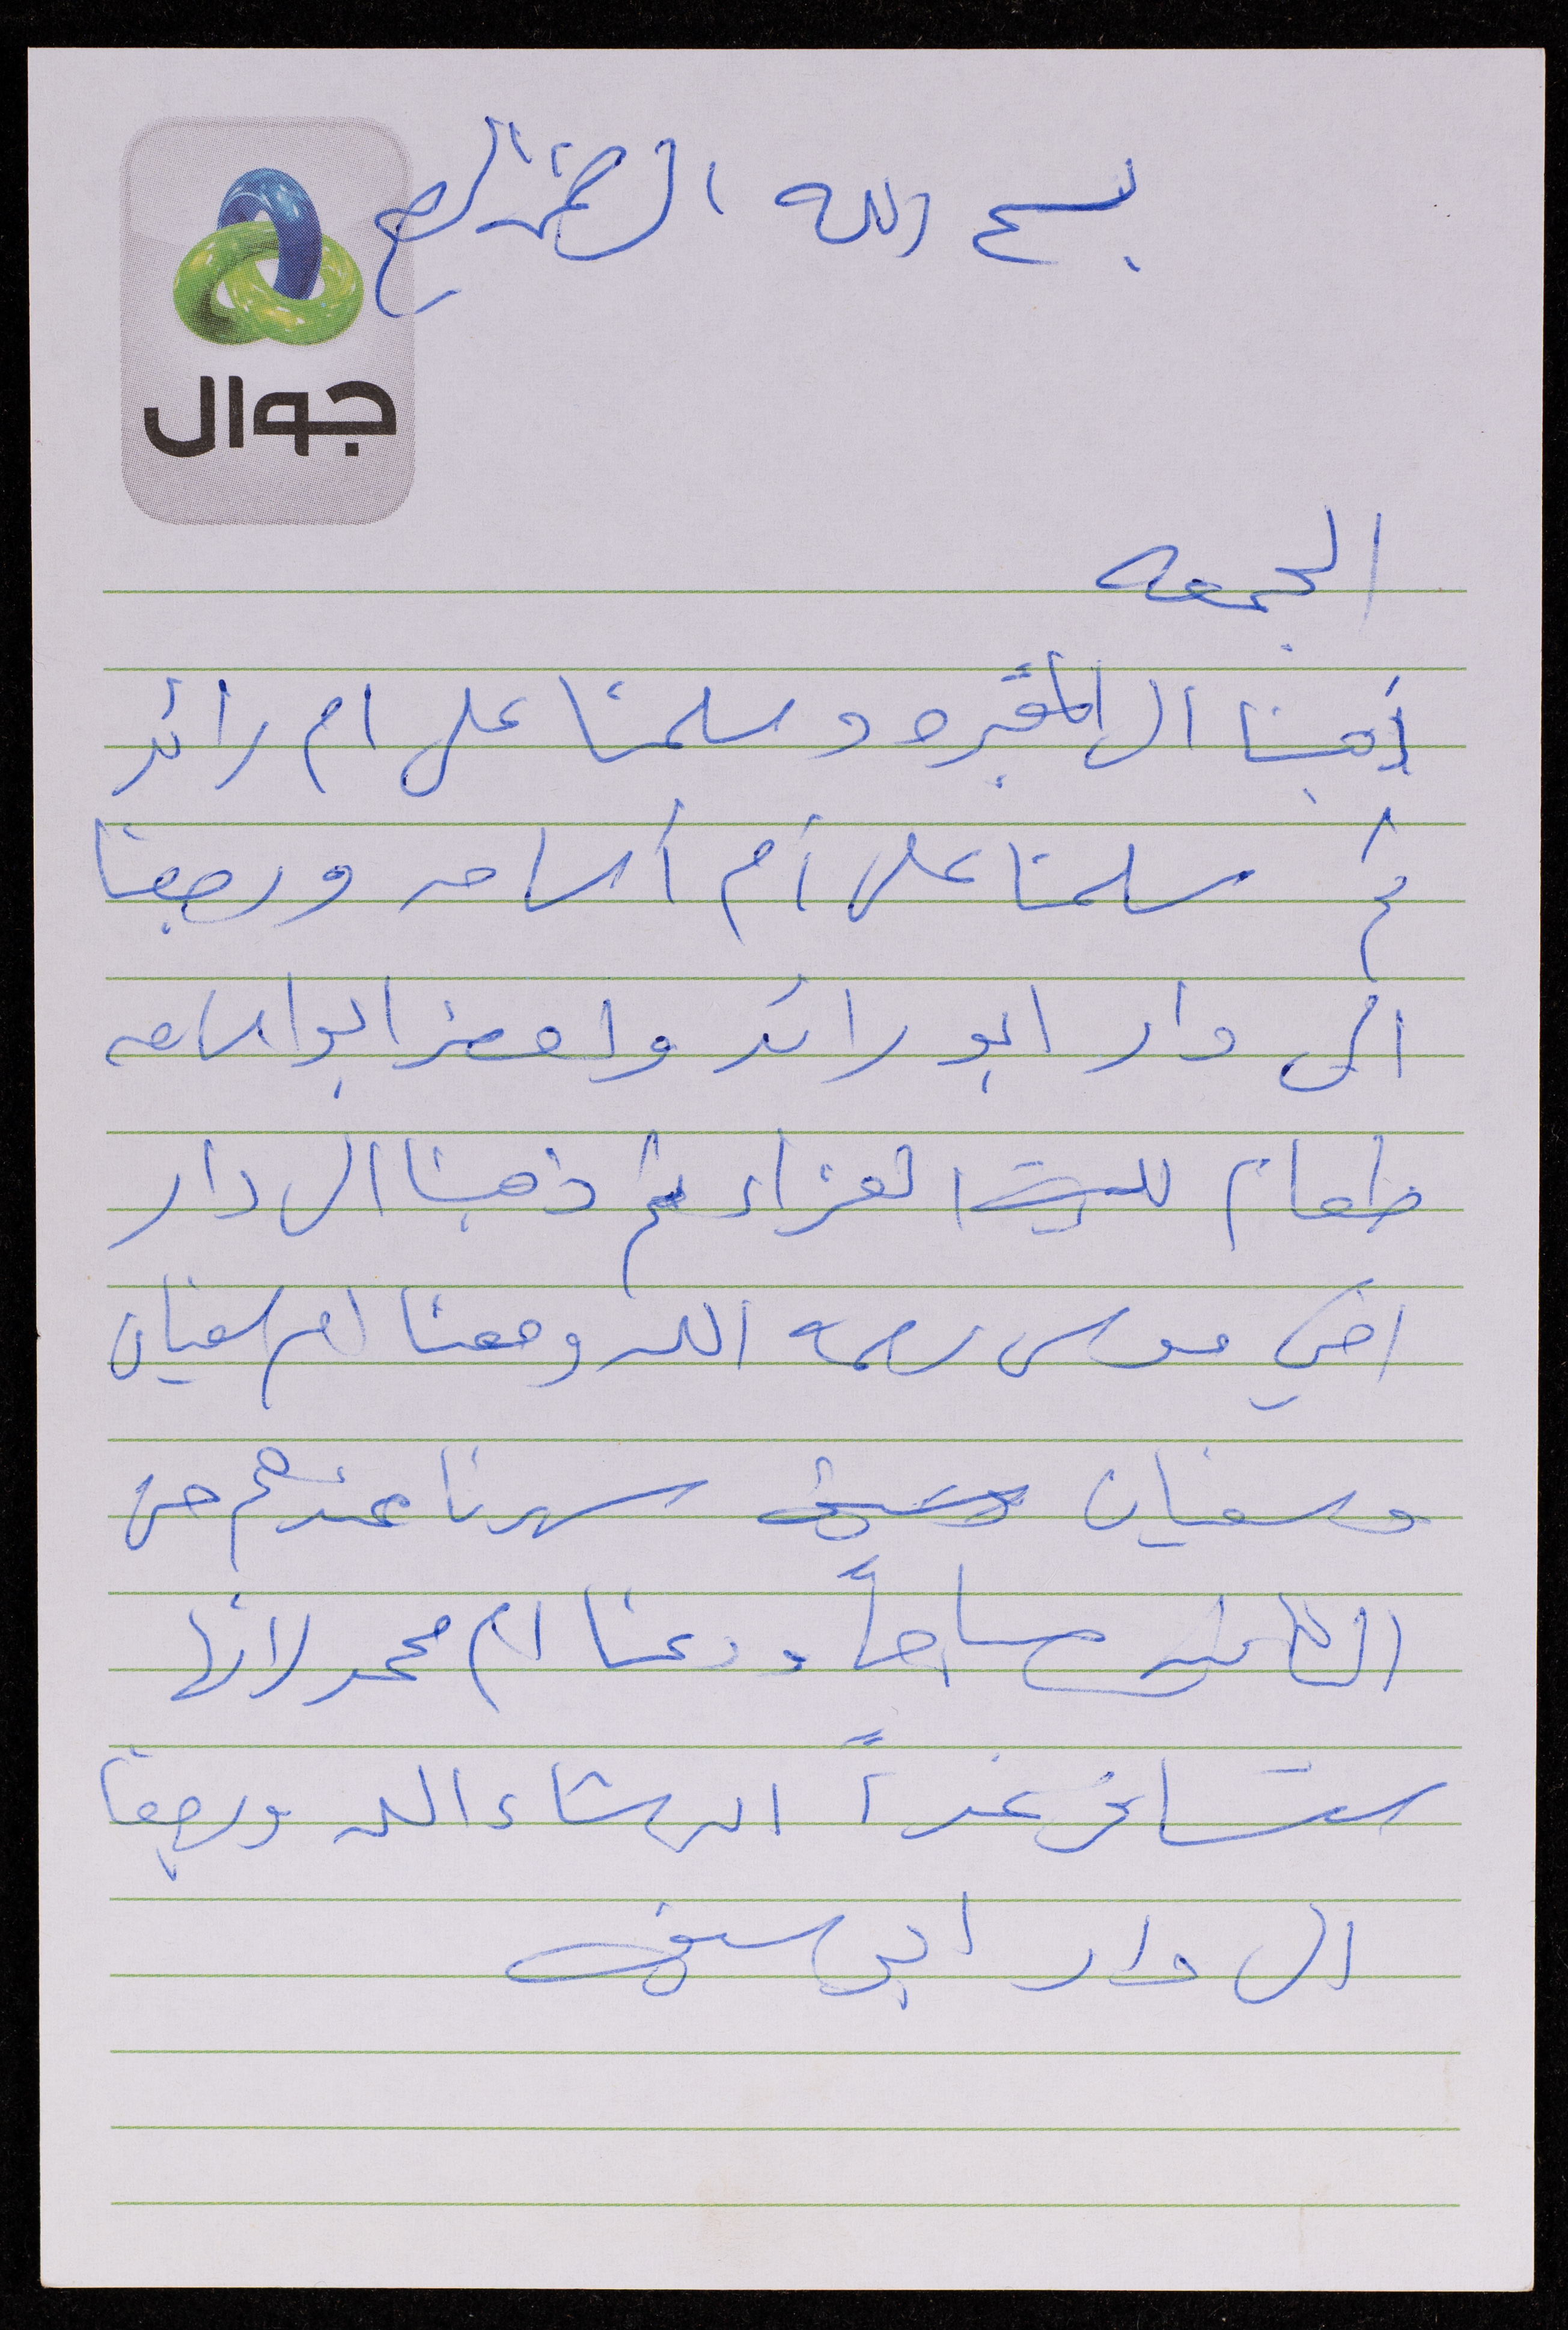 بسم الله الرحمن الرحيم
جوال
الجمعه
ذهبنا الى المقبره وسلمنا على ام رائد
ثم سلمنا على أم أسامه ورجعنا
الى دار ابو رائد واحضر ابو اسامه
طعام العزاء ثم ذهبنا الى دار
اخي موسى رحمه الله ومعنا ام سفيان
وسفيان سهرنا عندهم حتى
الثانيه صباحاً ودعنا ام محمد لانها
ستسافر غداً ان شاء الله ورجعنا
الى دار ابي سيف